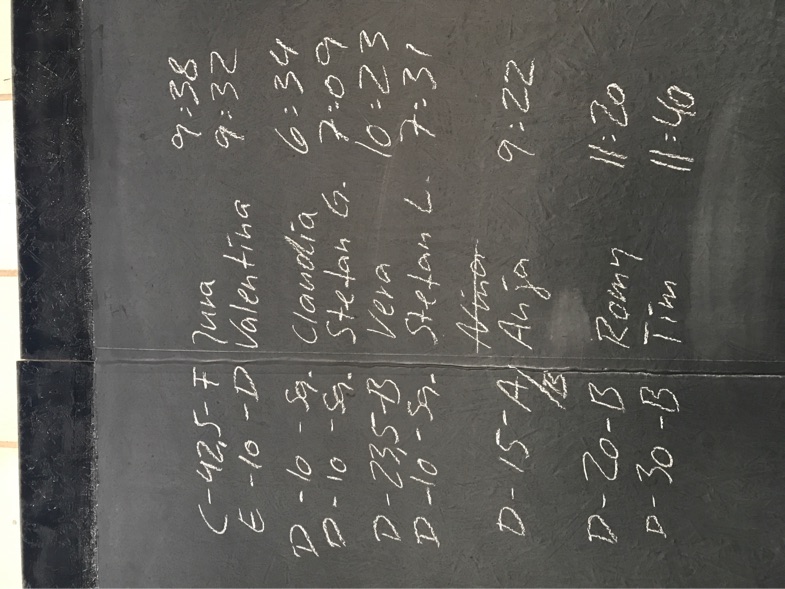 C-42,5-F Jura 9:38
E -10 -D Valentina 9:32
D-10 -Sq. Claudia 6:34
D-10 -Sq. Stefan G. 7:09
D-23,5-B Vera 10:23
D-10-Sq. Stefan L. 7:31
D-15-A/B Anja 9:22
D-20-B Romy 11:20
D-30-B Tim 11:40